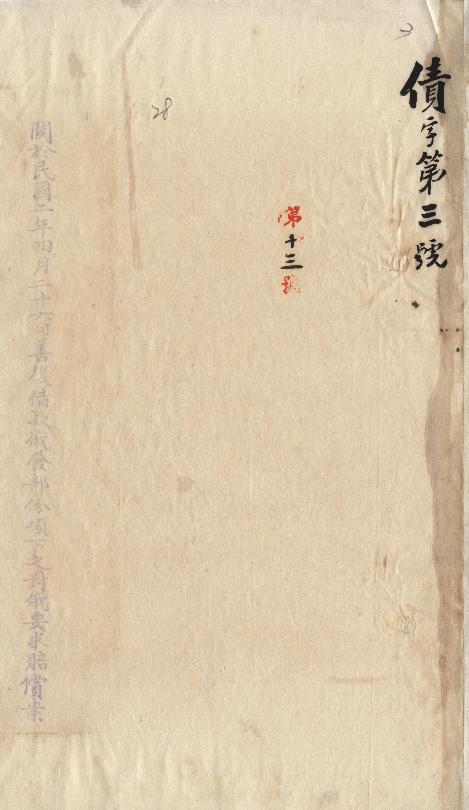 債字第三號
第十三號
28
關於民國二年四月二十六日善後借款俄發部份項下之對俄要求賠償案